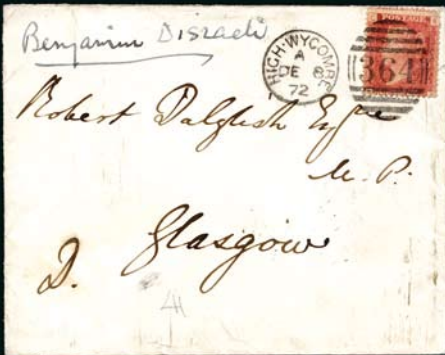 Benjamin Disraeli
HIGH-WYCOMBE
A
DE 8
72
POSTAGE
364
Robert Dalglish Esqre
M.P.
Glasgow
D.